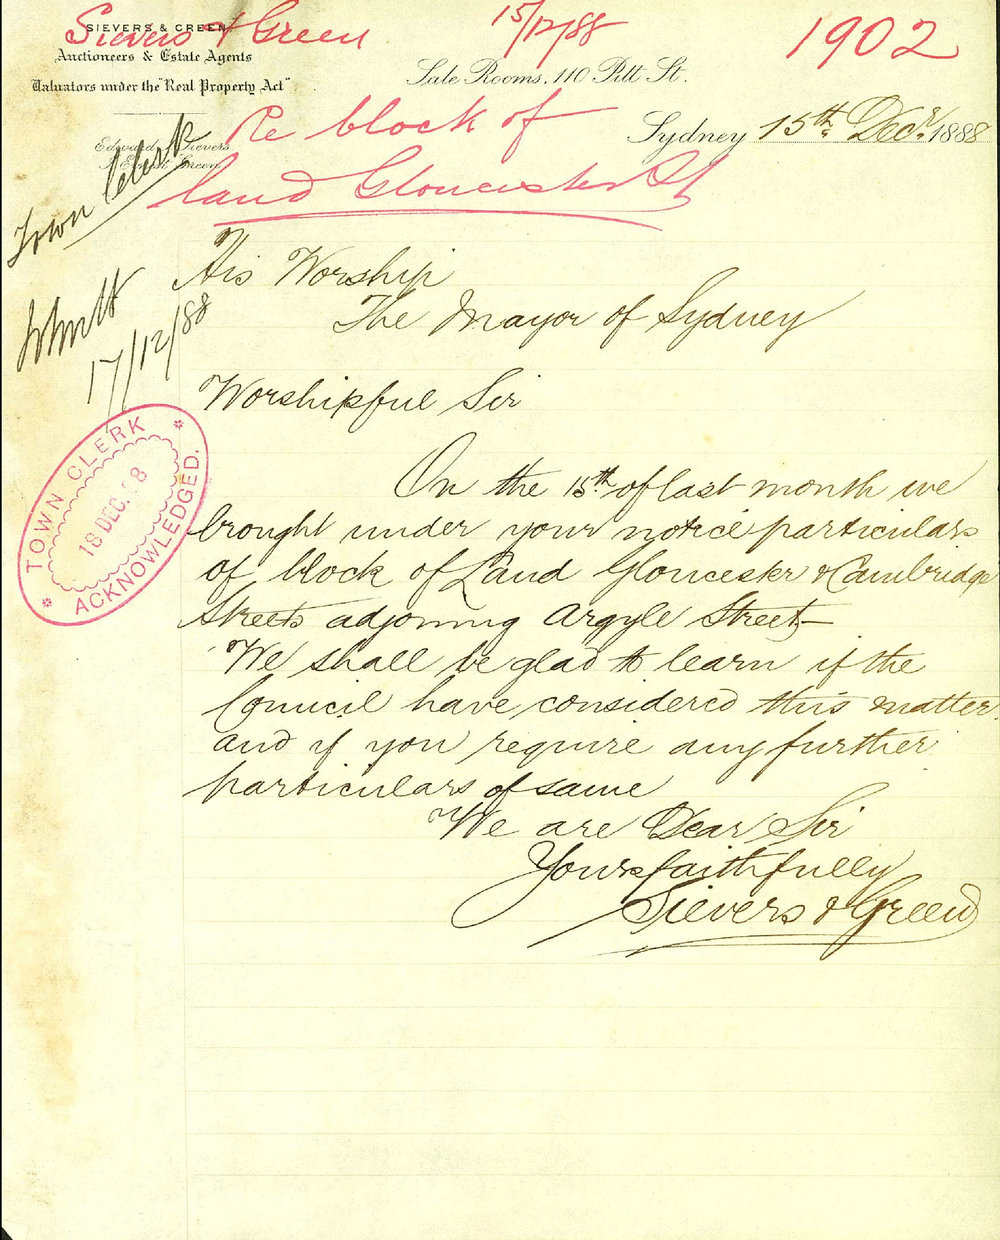 SIEVERS & GREEN
Sievers & Green
15/12/88
1902
Auctioneers & Estate Agents
Valuators under the "Real Property Act"
Sale Rooms, 110 Pitt St.
Re block of
land Gloucester St
Sydney 15th Decr. 1888
Edward Sievers
Green
Town Clerk
17/12/88
His Worship
The Mayor of Sydney
Worshipful Sir
TOWN CLERK
18 DEC. 88
ACKNOWLEDGED.
On the 15th of last month we
brought under your notice particulars
of block of Land Gloucester & Cambridge
Streets adjoining Argyle Street—
We shall be glad to learn if the
Council have considered this matter
and if you require any further
particulars of same
We are Dear Sir
Yours faithfully
Sievers & Green